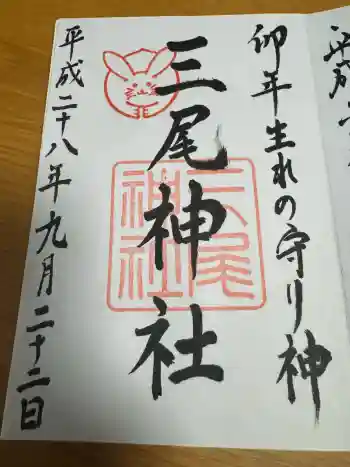 平成二
卯年生れの守り神
三尾神社
三尾神社
平成二十八年九月二十二日